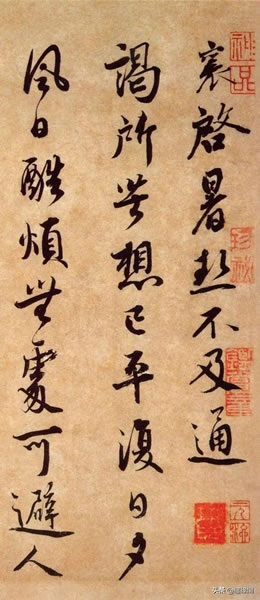 襄啓暑熱不及通
謁所苦想已平復日夕
風日酷煩無處可避人